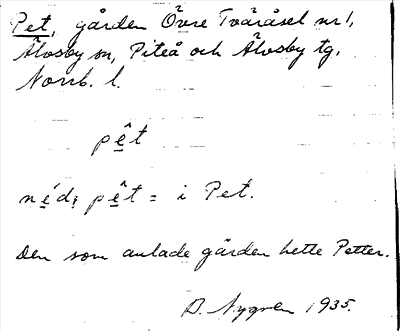 Pet, gården Övre Tväråsel nr 1,
Älvsby sn, Piteå och Älvsby tg,
Norrb. l.
pê̲t
né̲d i pê̲t = i Pet.
Den som anlade gården hette Petter.
D. Nygren 1935.